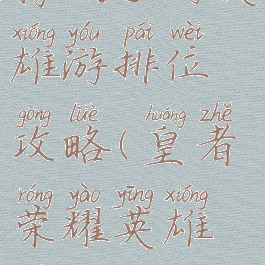 xióng yóu pái wèi
雄游排位
gōng lüè huáng zhě
攻略(皇者
róng yào yīng xióng
荣耀英雄